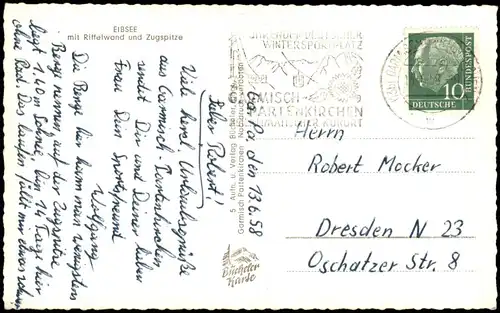 EIBSEE
mit Riffelwand und Zugspitze
Ga. Pa den 13.6.58
Lieber Robert!
Viele herzl. Urlaubsgrüße
aus Garmisch-Partenkirchen
sendet Dir und Deiner lieben
Frau Dein Sportsfreund
Wolfgang
Die Berge hier kann man wenigstens
Berge nennen, auf der Zugspitze
liegt 1,40 m Schnee, bin 14 Tage hier
ohne Rad. Das laufen fällt mir etwas schwer
5 Aufn. u. Verlag
Garmisch-Partenkirchen
WINTERSPORTPLATZ
GARMISCH-
PARTENKIRCHEN
HEILKLIMATISCHER KURORT
10
DEUTSCHE
BUNDESPOST
Herrn
Robert Mocker
Dresden N 23
Oschatzer Str. 8
Karte